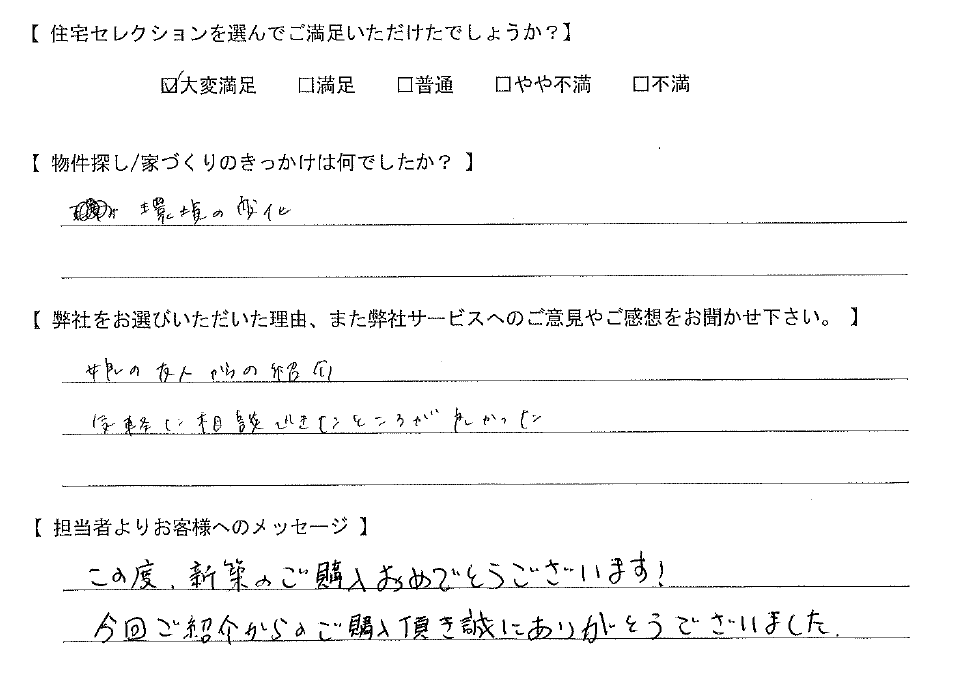 【 住宅セレクションを選んでご満足いただけたでしょうか？】
☑大変満足 □満足 □普通 □やや不満 □不満
【 物件探し/家づくりのきっかけは何でしたか？ 】
環境の変化
【 弊社をお選びいただいた理由、また弊社サービスへのご意見やご感想をお聞かせ下さい。 】
の友人からの紹介
気軽に相談できたところが良かった
【 担当者よりお客様へのメッセージ 】
この度、新築のご購入おめでとうございます！
今回ご紹介からのご購入頂き誠にありがとうございました.